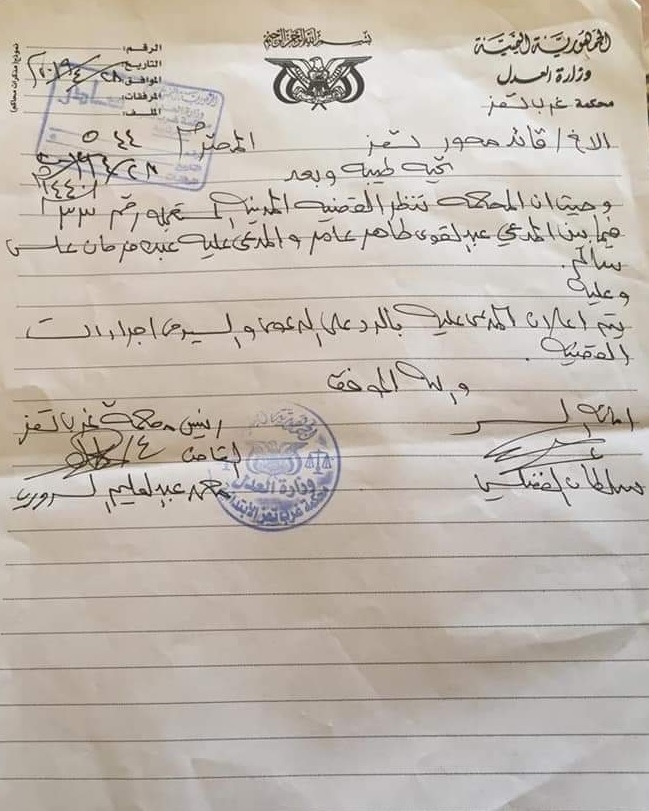 بسم الله الرحمن الرحيم
الجمهورية اليمنية
وزارة العدل
محكمة غرب تعز
الرقم:
التاريخ: ٢٨/٤/٢٠١٩
الموافق:
المرفقات:
الملف:
الاخ/ قائد محور تعز المحترم
تحيه طيبه وبعد
وحيث ان المحكمة تنظر القضيه المدنيه المستعجله رقم ٣٣
فيما بين المدعي عبدالقوي طاهر عامر والمدعى عليه عبده فرحان علي
سالم.
وعليه
يتم اعلان المدعى عليه بالرد على الدعوى والسير في اجراءات
القضيه.
والله الموفق
امين السر
رئيس محكمة غرب تعز
القاضي
سلطان
محمد عبدالعليم السروري
وزارة العدل
محكمة غرب تعز الابتدائية